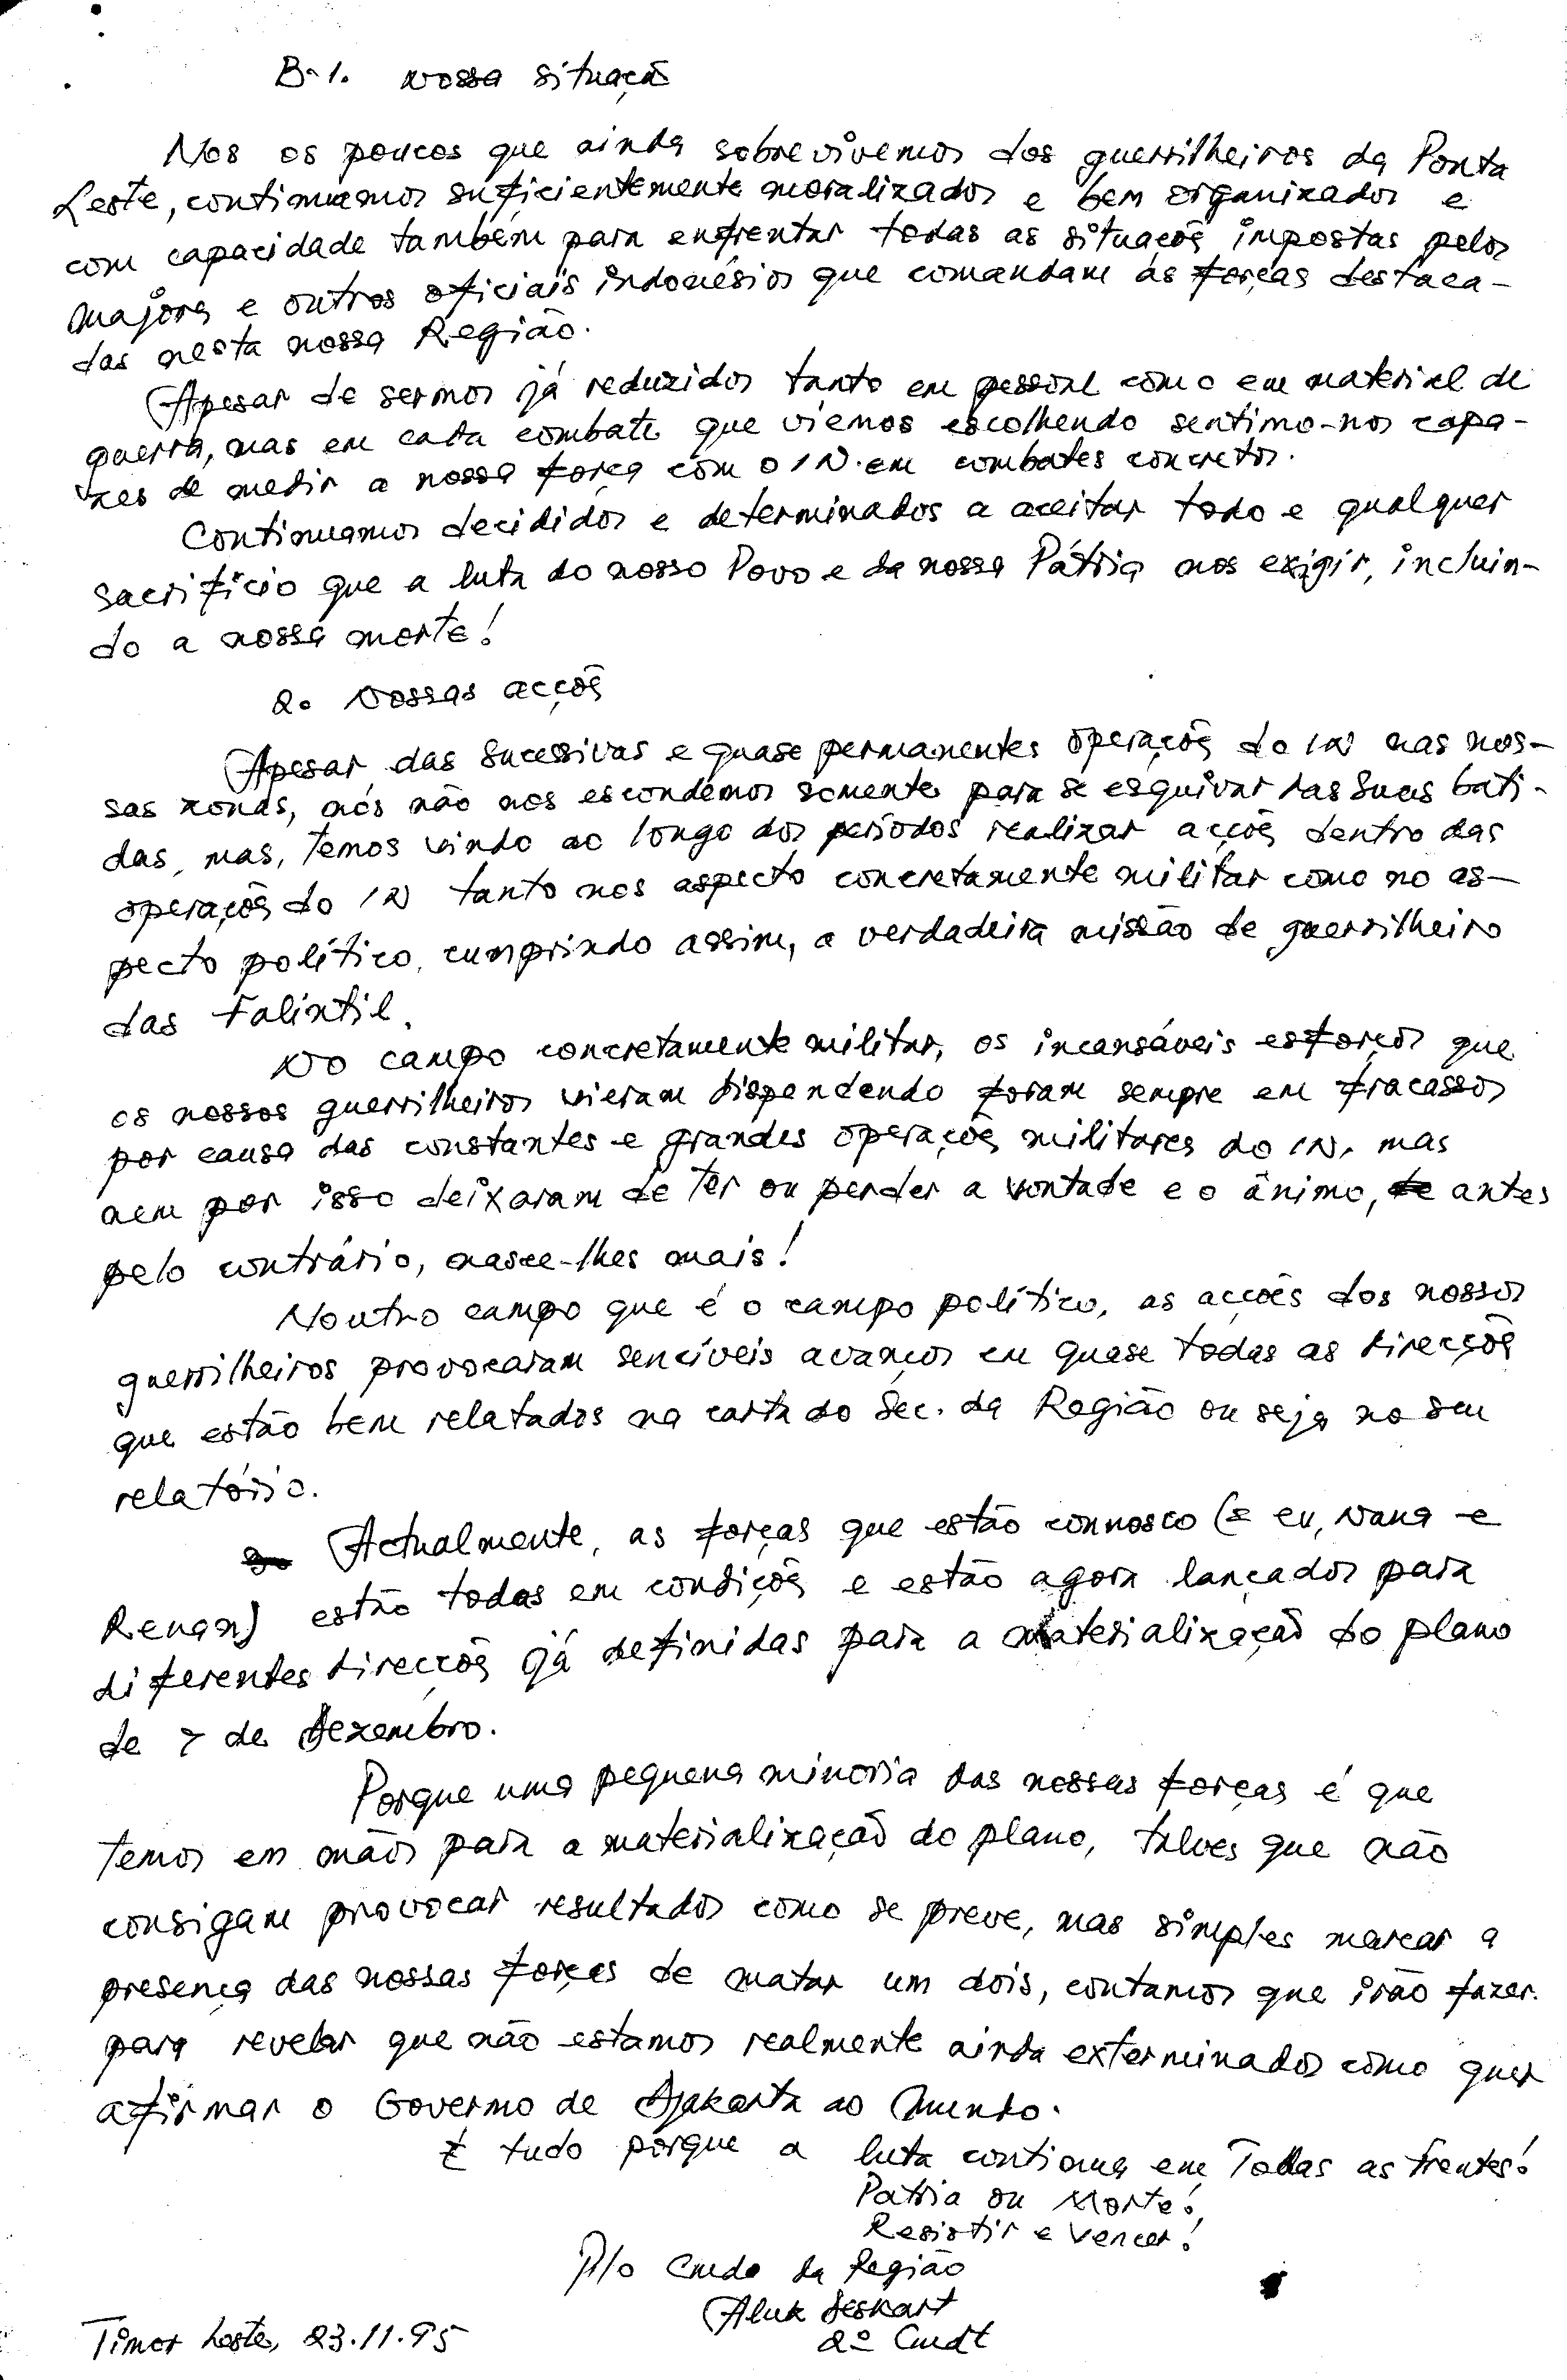 B-1. Nossa situação
Nos os poucos que ainda sobrevivemos dos guerrilheiros da Ponta
Leste, continuamos suficientemente moralizados e bem organizados e
com capacidade também para enfrentar todas as situações impostas pelos
majores e outros oficiais indonésios que comandam as forças destaca-
das nesta nossa Região.
Apesar de sermos já reduzidos tanto em pessoal como em material de
guerra, mas em cada combate que viemos escolhendo sentimo-nos capa-
zes de medir a nossa força com o IN. em combates concretos.
Continuamos decididos e determinados a aceitar todo e qualquer
sacrifício que a luta do nosso Povo e da nossa Pátria nos exigir, incluin-
do a nossa morte!
2. Nossas acções
Apesar das sucessivas e quase permanentes operações do IN nas nos-
sas zonas, nós não nos escondemos somente para se esquivar das suas bati-
das, mas, temos vindo ao longo dos períodos realizar acções dentro das
operações do IN tanto nos aspecto concretamente militar como no as-
pecto político, cumprindo assim, a verdadeira missão de guerrilheiro
das Falintil.
No campo concretamente militar, os incansáveis esforços que
os nossos guerrilheiros vieram dispendendo foram sempre em fracassos
por causa das constantes e grandes operações militares do IN, mas
nem por isso deixaram de ter ou perder a vontade e o ânimo, de antes
pelo contrário, nasce-lhes mais!
Noutro campo que é o campo político, as acções dos nossos
guerrilheiros provocaram sencíveis avanços em quase todas as direcções
que estão bem relatados na carta do Sec. da Região ou seja no seu
relatório.
Actualmente, as forças que estão connosco (= eu, Nana e
Renan) estão todas em condições e estão agora lançados para
diferentes direcções já definidas para a materialização do plano
de 7 de Dezembro.
Porque uma pequena minoria das nossas forças é que
temos em mãos para a materialização do plano, talves que não
consigam provocar resultados como se preve, mas simples marcar a
presença das nossas forças de matar um dois, contamos que irão fazer.
para revelar que não estamos realmente ainda exterminados como quer
afirmar o Governo de Djakarta ao Mundo.
É tudo porque a luta continua em Todas as frentes!
Patria ou Morte!
Resistir e Vencer!
P/o Cmdo da Região
Aluk Deskart
2º Cmdt
Timor Leste, 23.11.95